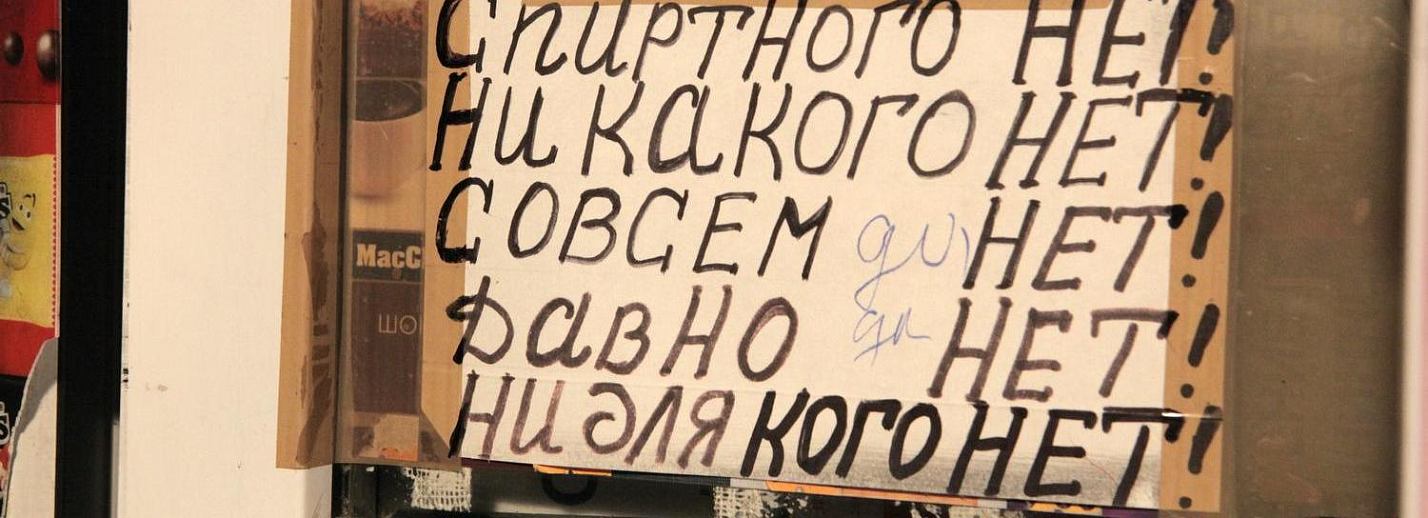 Спиртного НЕТ!
НИКАКОГО НЕТ!
СОВСЕМ НЕТ!
ДАВНО да НЕТ!
НИ ДЛЯ КОГО НЕТ!
MacC
ШО